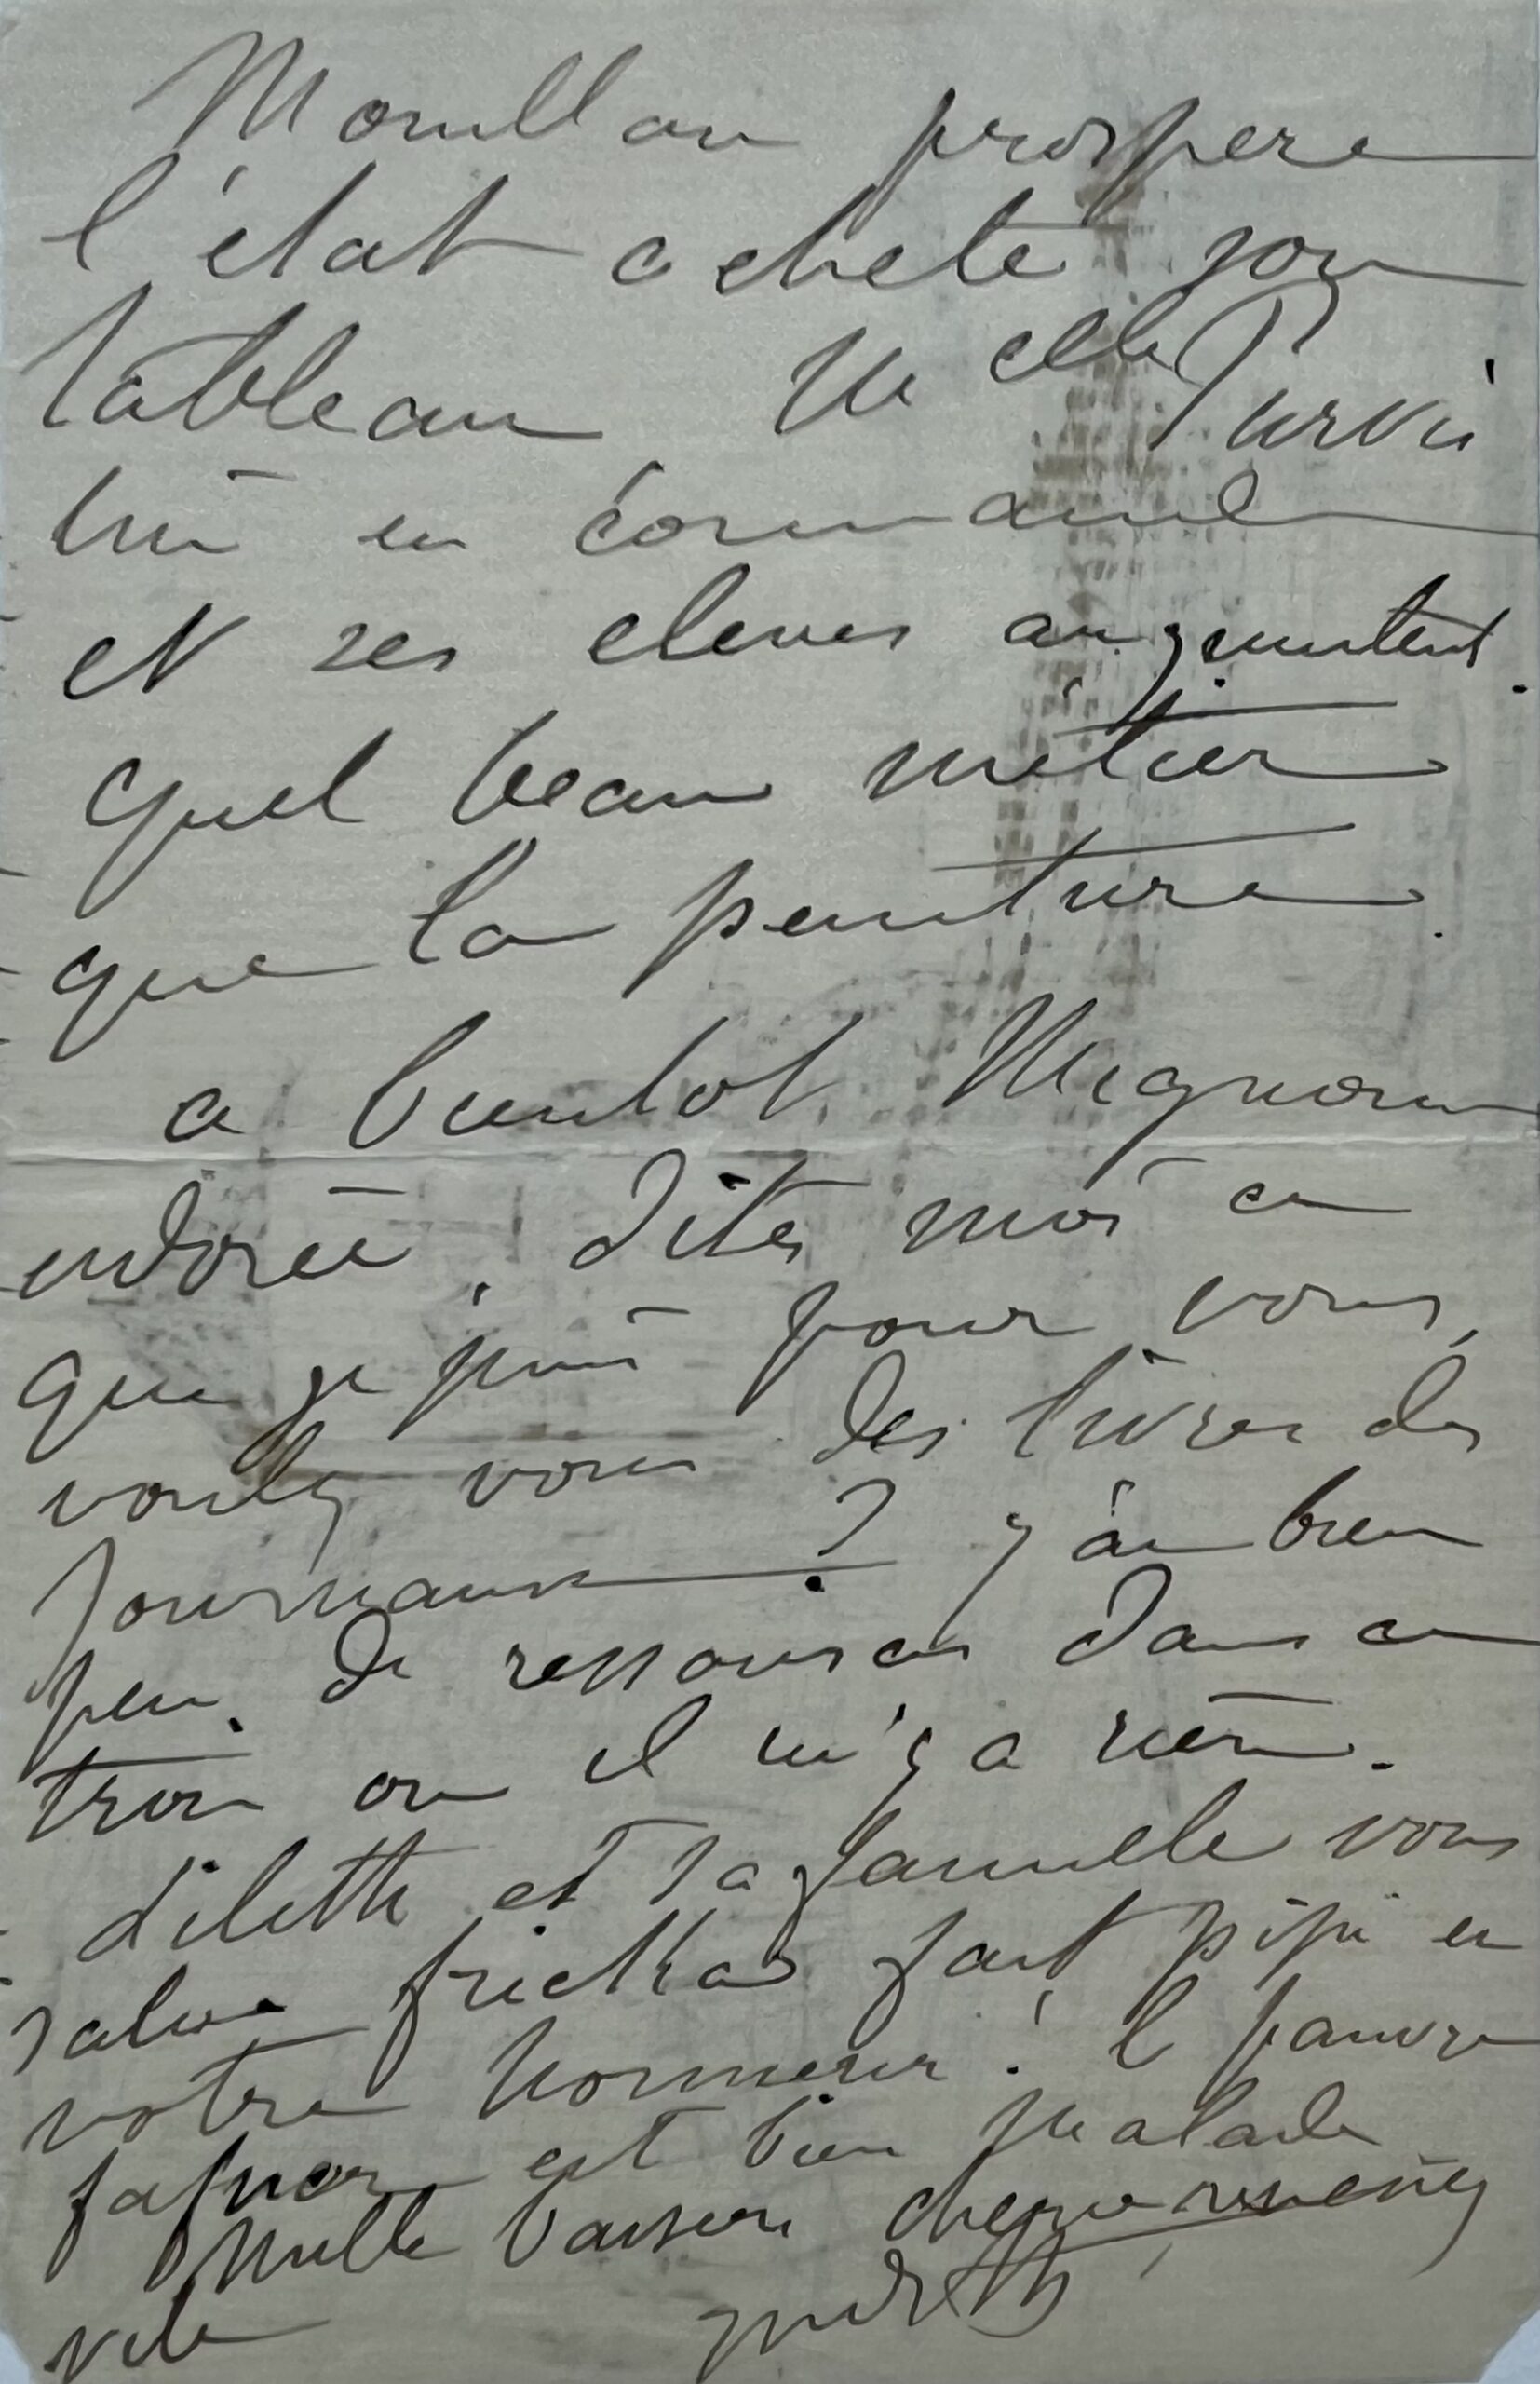 Moullon prospere
l'état achete son
tableau Melle Parvis
lui en commande
et ses eleves augmentent.
quel beau métier
que la peinture.
a bientot. Mignonne
adorée. dites moi ce
que je puis pour vous,
voulez vous des livres des
journaux ? j'ai bien
peu de ressources dans ce
trou ou il n'y a rien.
Lilith et sa famille vous
salue fricka fait pipi en
votre honneur ! le pauvre
fafner est bien malade
Mille baisers chere revenez
vite Judith